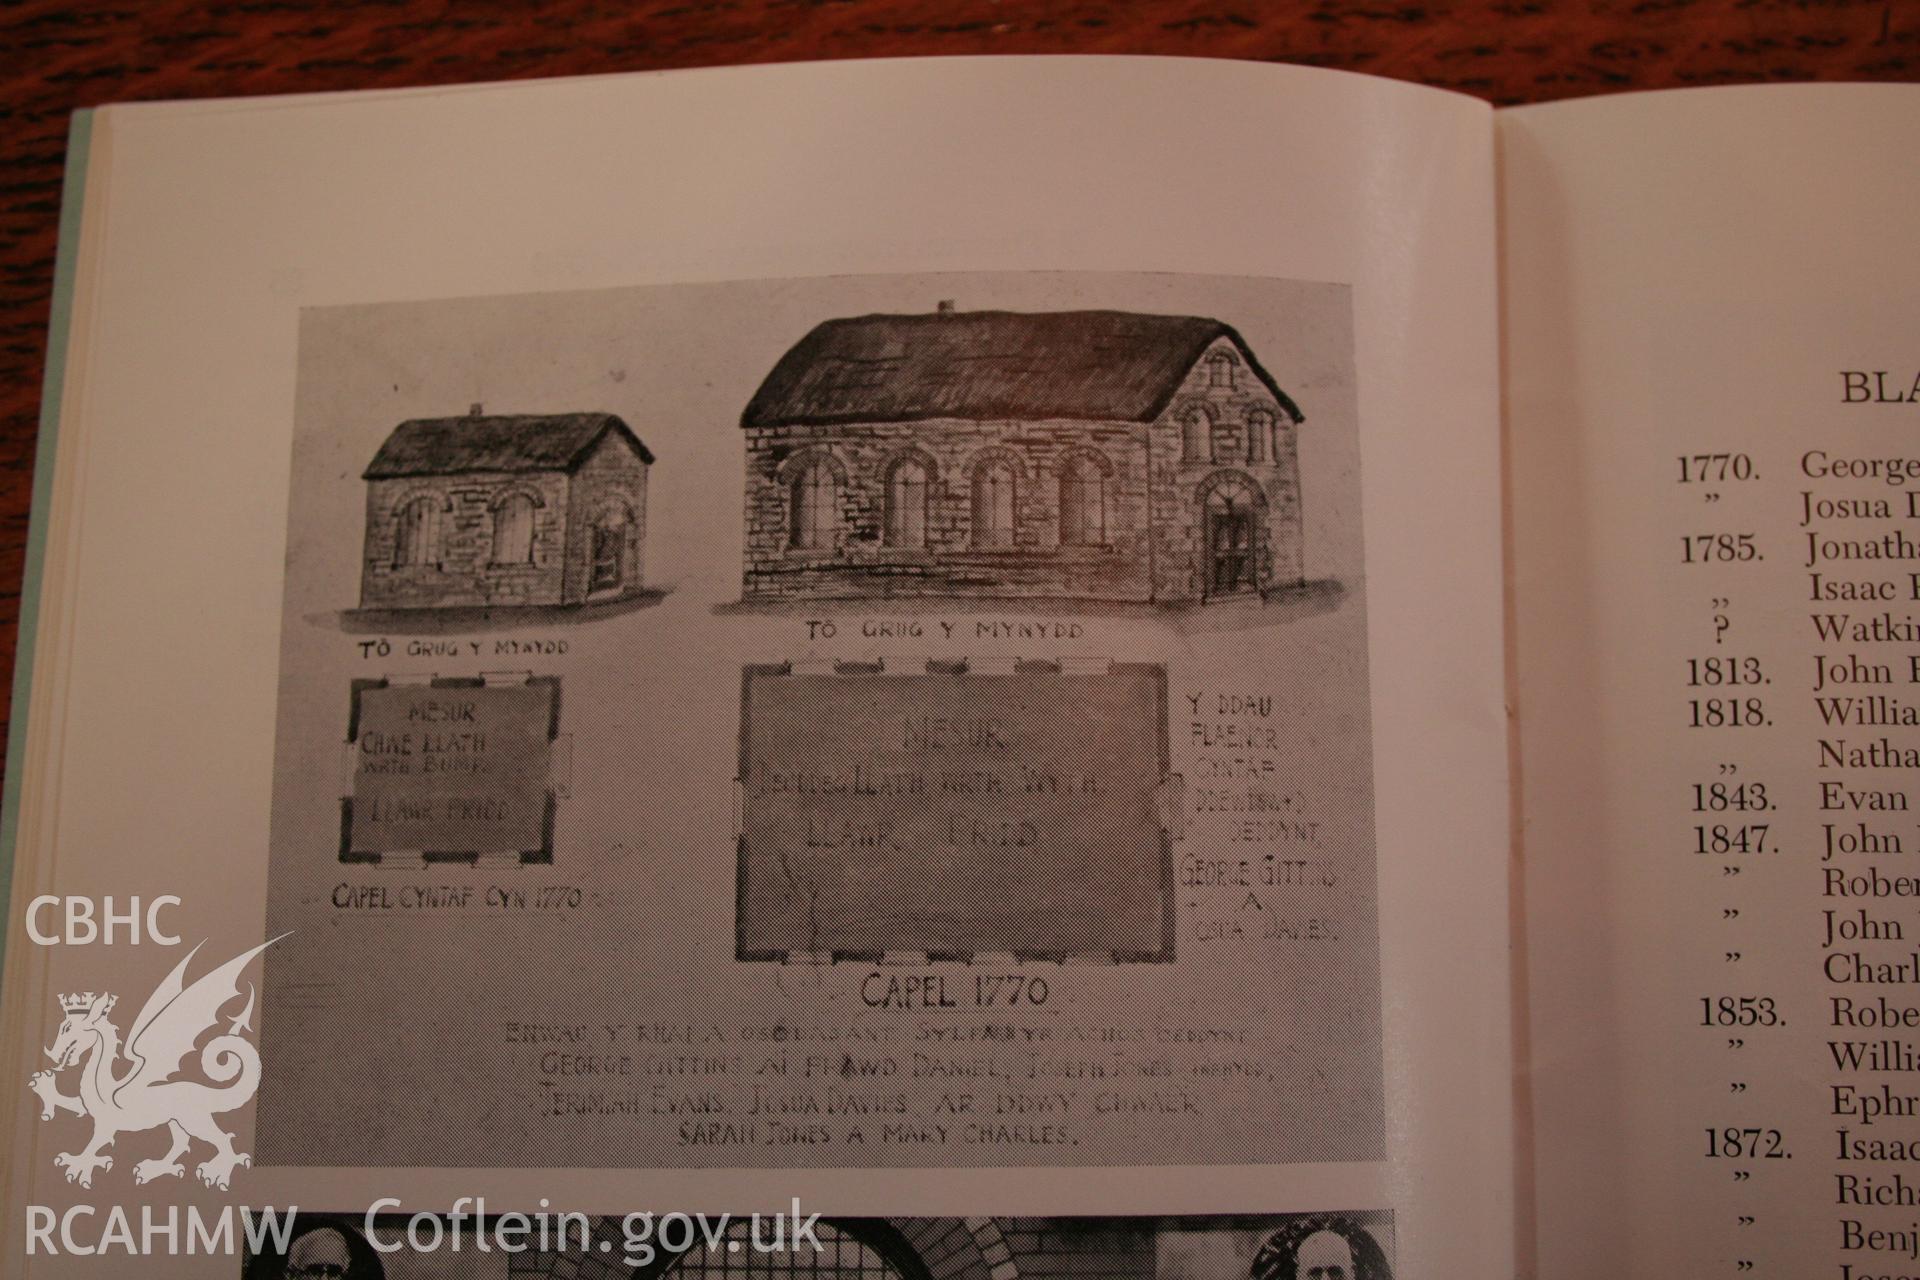 TÔ GRUG Y MYNYDD
TÔ GRUG Y MYNYDD
MESUR
CHWE LLATH
WRTH BUMP.
LLAWR PRIDD
CAPEL CYNTAF CYN 1770
MESUR
LLATH WRTH WYTH.
LLAWR PRIDD
CAPEL 1770
Y DDAU
FLAENOR
CYNTAF
DDEWISWYD
OEDDYNT,
GEORGE GITTINS
A
JOSUA DAVIES.
ENWAU Y RHAI A OSODASANT SYLFAEN YR ACHOS OEDDYNT
GEORGE GITTINS A'I FRAWD DANIEL, JOSEPH JONES
JERIMIAH EVANS, JOSUA DAVIES A'R DDWY CHWAER,
SARAH JONES A MARY CHARLES.
BLA
1770. George
” Josua D
1785. Jonatha
,, Isaac
? Watkin
1813. John
1818. Willia
,, Natha
1843. Evan
1847. John
” Rober
” John
” Charl
1853. Robe
” Willia
” Ephr
1872. Isaac
” Richa
” Benj
”
CBHC
RCAHMW
Coflein.gov.uk